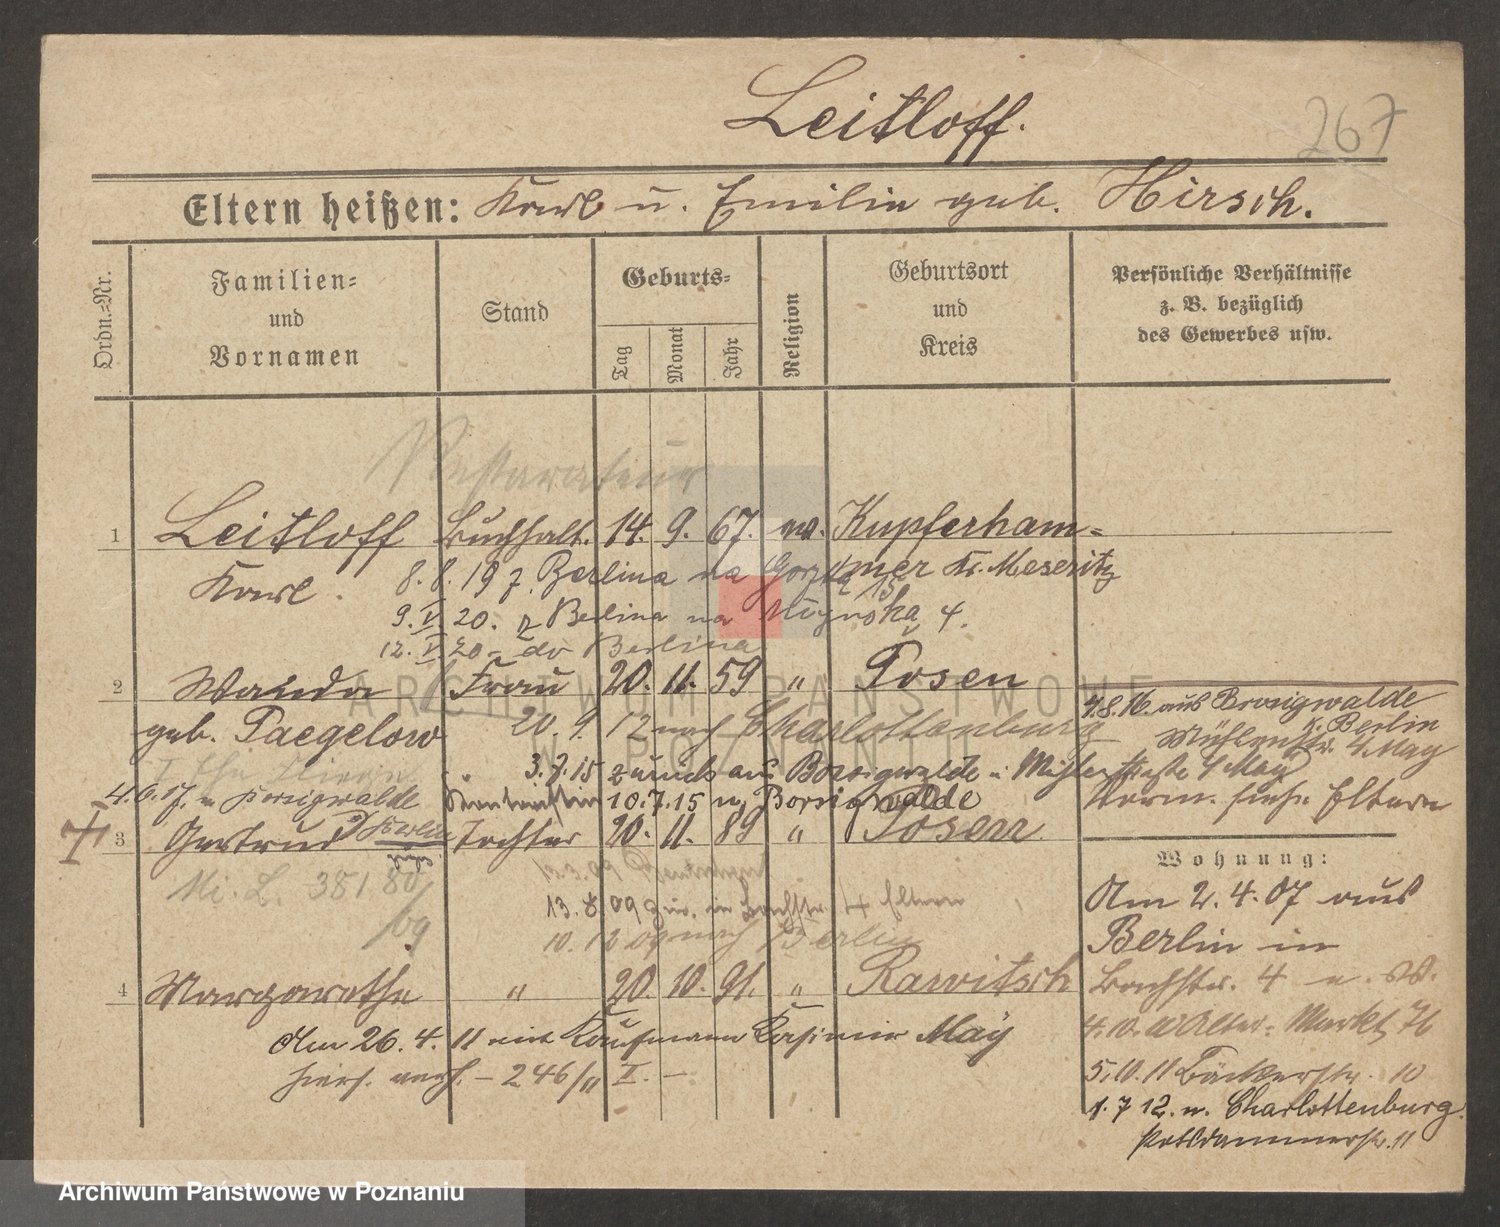 Leitloff.
267
Eltern heißen: Karl u. Emilie geb. Hirsch.
Ordn.-Nr.
Familien-
und
Vornamen
Stand
Geburts-
Tag
Monat
Jahr
Religion
Geburtsort
und
Kreis
Persönliche Verhältnisse
z. B. bezüglich
des Gewerbes usw.
Restaurateur
1 Leitloff Buchhalt. 14. 9. 67. ev. Kupferham-
mer Kr. Meseritz
Karl. 8.8.19 z Berlina na
9. V. 20. z Berlina na 4.
12. V. 20 - do Berlina
2 Wanda Frau 20. 11. 59 " Posen
geb. Paegelow 20. 9. 12 nach Charlottenburg
3.7.15 zurück aus Borsigwalde
4.6.17. n Borsigwalde 10.7.15 n. Borsigwalde
3 Gertrud Tochter 20. 11. 89 " Posen
Mi. L. 381 80/
/09
13.8.09 zur. in Bachstr. 4 Eltern
10. 12 09 nach Berlin
4 Margarethe " 20. 10. 91. " Rawitsch
Am 26. 4. 11 mit Kaufmann Kasimir May
hiers. verh. - 246/11 I. -
4.8.16. aus Borsigwalde
b. Berlin
4 May
Eltern
Wohnung:
Am 2. 4. 07 aus
Berlin in
Bachstr. 4 n. W.
4.10.10 Alter-Markt 76
5.10.11 Bäckerstr. 10
1. 7 12. n. Charlottenburg
Potsdammerstr. 11
ARCHIWUM PAŃSTWOWE
W POZNANIU
Archiwum Państwowe w Poznaniu